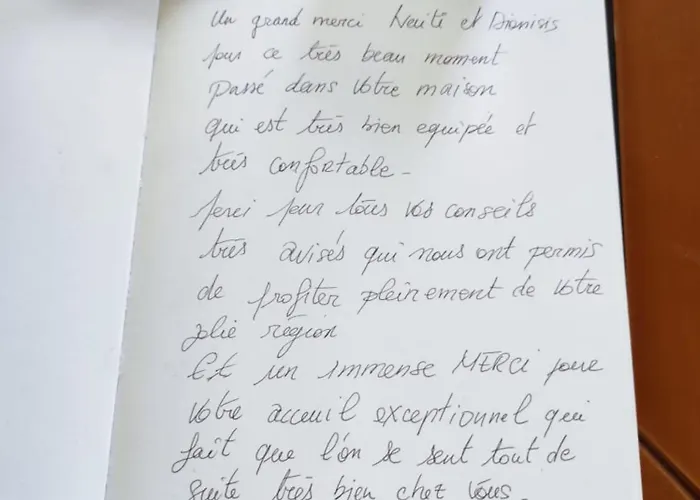 Un grand merci Neité et Dionisis
pour ce très beau moment
passé dans votre maison
qui est très bien equipée et
très confortable -
Merci pour tous vos conseils
très avisés qui nous ont permis
de profiter pleinement de votre
jolie région
Et un immense MERCI pour
votre acceuil exceptionnel qui
fait que l'on se sent tout de
suite très bien chez vous.